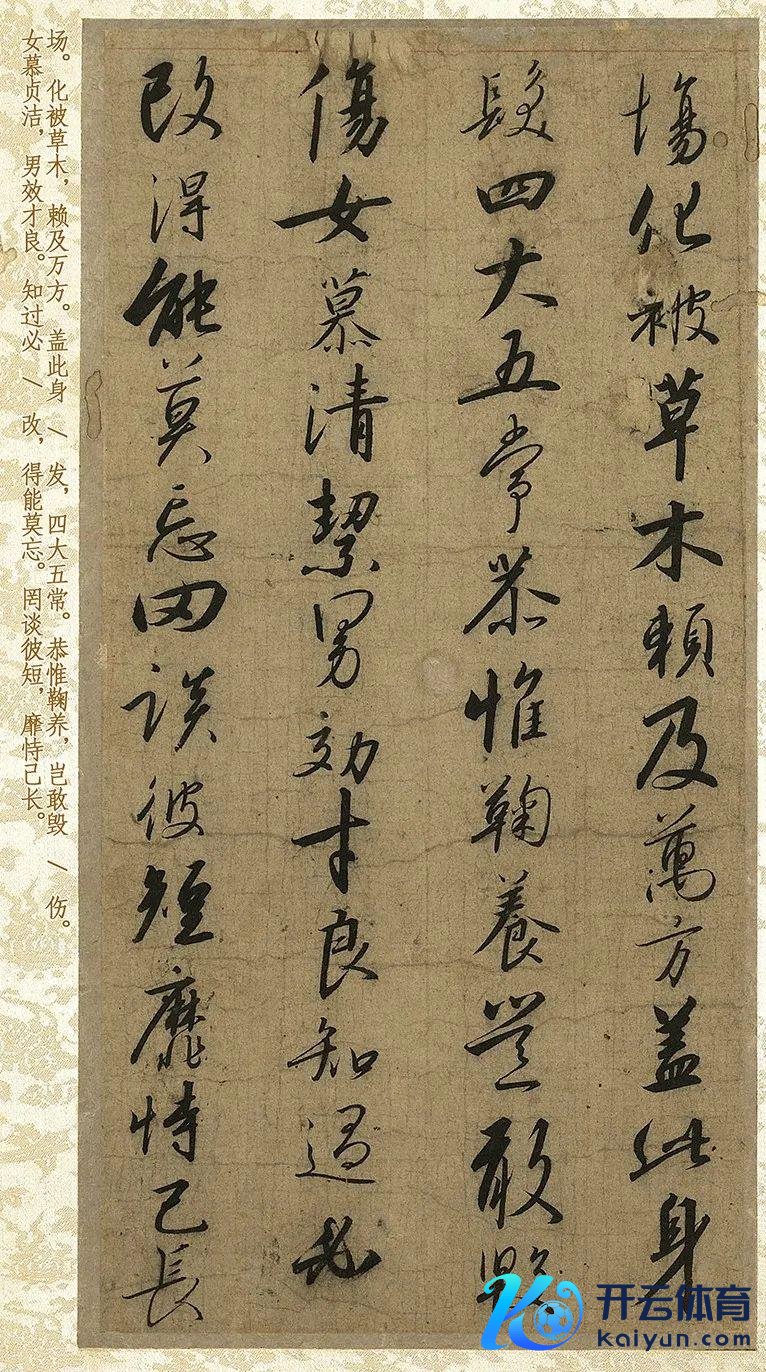 塲化被草木賴及萬方盖此身
髮四大五常恭惟鞠養豈敢毀
傷女慕清絜男効才良知過必
改得能莫忘罔談彼短靡恃己長
场。化被草木，赖及万方。盖此身/发，四大五常。恭惟鞠养，岂敢毁/伤。
女慕贞洁，男效才良。知过必/改，得能莫忘。罔谈彼短，靡恃己长。
开云体育
kaiyun.com